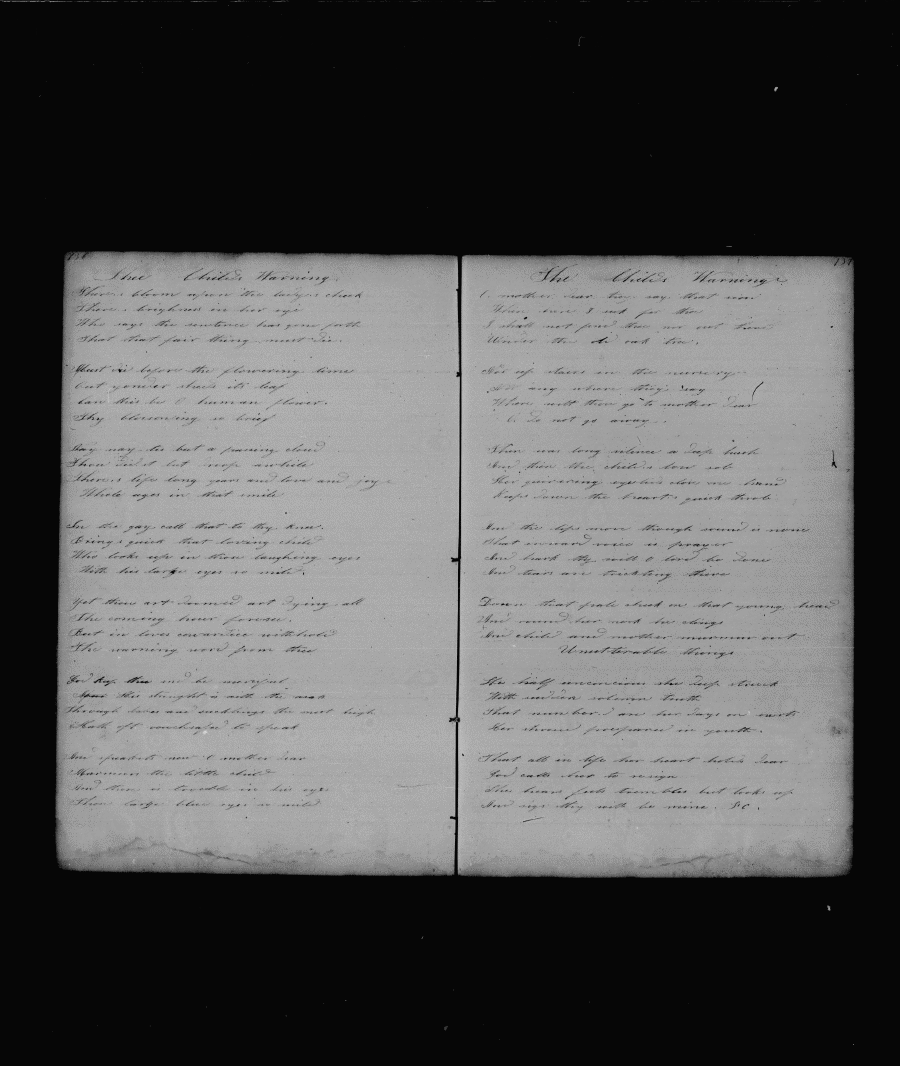 The Child's Warning
There's bloom upon the lady's cheek
There's brightness in her eye
Who says the sentence has gone forth
That that fair thing must die

Must die before the flowering lime
Out yonder sheds its leaf
Can this be O human flower.
Thy blossoming so brief

Nay nay tis but a passing cloud
Thou didst but droop awhile
There's life long years and love and joy
Whole ages in that smile

In the gay call that to thy knee.
Brings quick that loving child
Who looks up in those laughing eyes
With his large eyes so mild.

Yet thou art doomed art dying all
The coming hour foresee.
But in loves cowardice withhold
The warning word from thee

God keep thee and be merciful
His strength is with the weak
Through babes and sucklings the most high
Hath oft vouchsafed to speak

And speaketh now O mother dear
Murmurs the little child
And there is trouble in his eyes
Those large blue eyes so mild

The Child's Warning
O mother dear they say that soon
When here I seek for thee
I shall not find thee nor out there
Under the old oak tree.

Nor up stairs in the nursery
Nor any where they say
Where wilt thou go to mother dear
O do not go away.

Then was long silence a deep hush
And then the child's low sob
Her quivering eyelids close one hand
Keeps down the heart's quick throb

And the lips move though sound is none
That inward voice is prayer
And hark thy will O lord be done
And tears are trickling there

Down that pale cheek on that young head
And round her neck he clings
And child and mother murmur out
Unutterable things

He half unconscious she deep struck
With sudden solemn truth
That number'd are her days on earth
Her shroud prepared in youth.

That all in life her heart holds dear
God calls her to resign
She hears feels trembles but looks up
And sighs thy will be mine. S C.